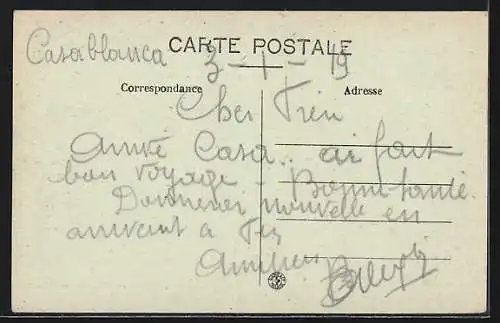 CARTE POSTALE
Casablanca 3 - 1 - 19
Correspondance
Adresse
Cher
Arrivé Casa.. ai fait
bon voyage - Bonne santé
Donnerai nouvelle en
arrivant a Fez